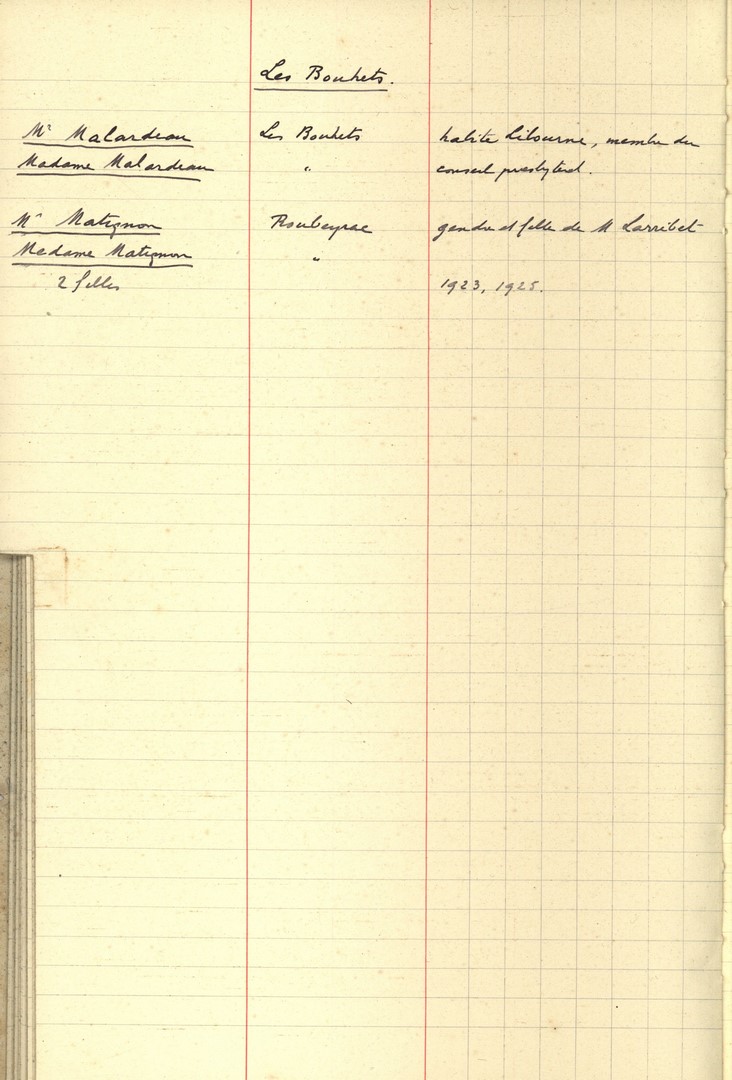 Les Bouhets.
Mr Malardeau Les Bouhets habite Libourne, membre du
Madame Malardeau " conseil presbytéral.
Mr Matignon Roubeyrac gendre et fille de M Larribet
Madame Matignon "
2 filles 1923, 1925.